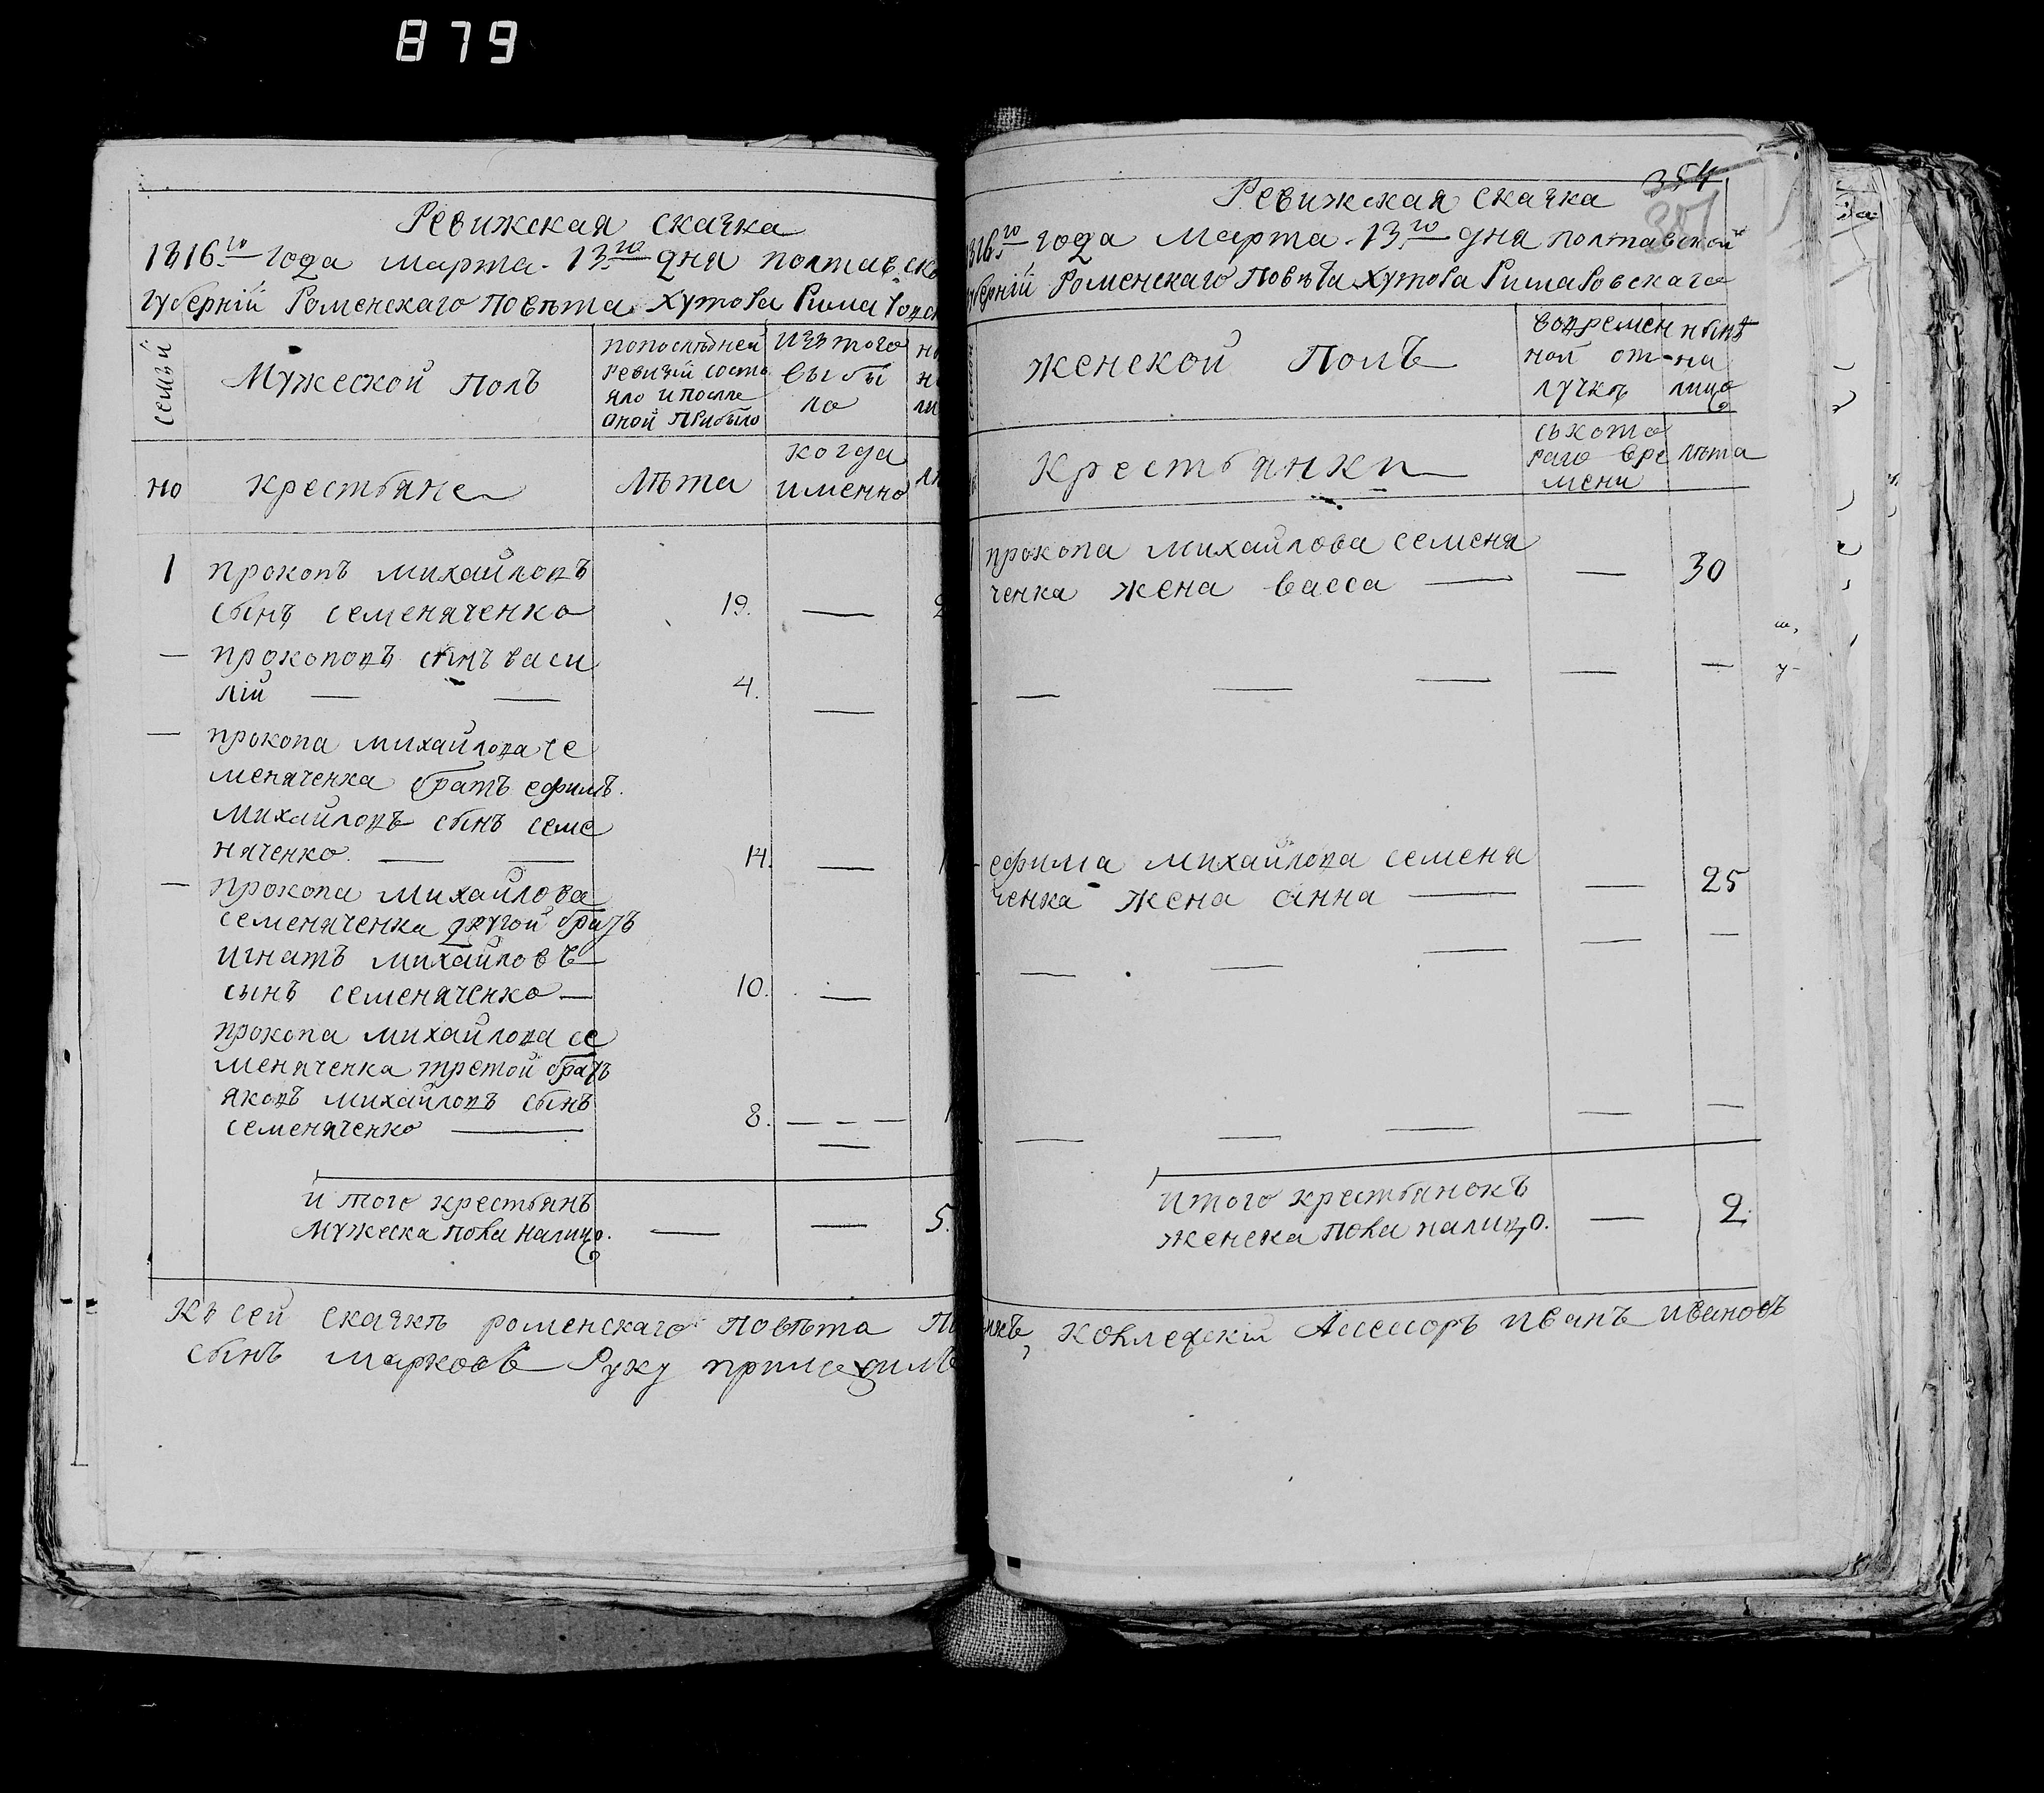 879
Ревижская скаѧка
1816.го года марта. 13.го дня полтавско
губерніи Роменскаго повѣта хутора Римаровск
семьи
Мужеской полъ
попослѣдней
ревизіи состо
яло и после
оной прибыло
изъ того
выбы
ло
но
крестьяне
лѣта
когда
именно
1
прокопъ михайловъ
сынъ семеняченко
19.
—
— прокоповъ сынъ васи
лій — — 4. —
— прокопа михайлова се
меняченка братъ ефимъ.
михайловъ сынъ семе
няченко. — — 14. —
— прокопа михайлова
семеняченка другой братъ
игнатъ михайловъ
сынъ семеняченко — 10. —
прокопа михайлова се
меняченка третой братъ
яковъ михайловъ сынъ
семеняченко — 8. — - —
итого крестьянъ
мужеска пола налицо. — — 5.
Къ сей скаѧкѣ роменскаго повѣта
сынъ марковъ Руку приложилъ
354
Ревижская скаѧка
816.го года марта. 13.го дня полтавской
губерніи Роменскаго повѣта хутора Римаровскаго
женской полъ
вовремен
ной от-
лучкѣ
нынѣ
на
лицо
крестьянки
съ кото
раго вре
мени
лѣта
прокопа михайлова семеня
ченка жена васса — — 30
— — — — —
ефима михайлова семеня
ченка жена анна — — 25
— — — — —
— — — — —
итого крестьянокъ
женска пола налицо. — 2.
коллежскій Ассесоръ иванъ ивановъ